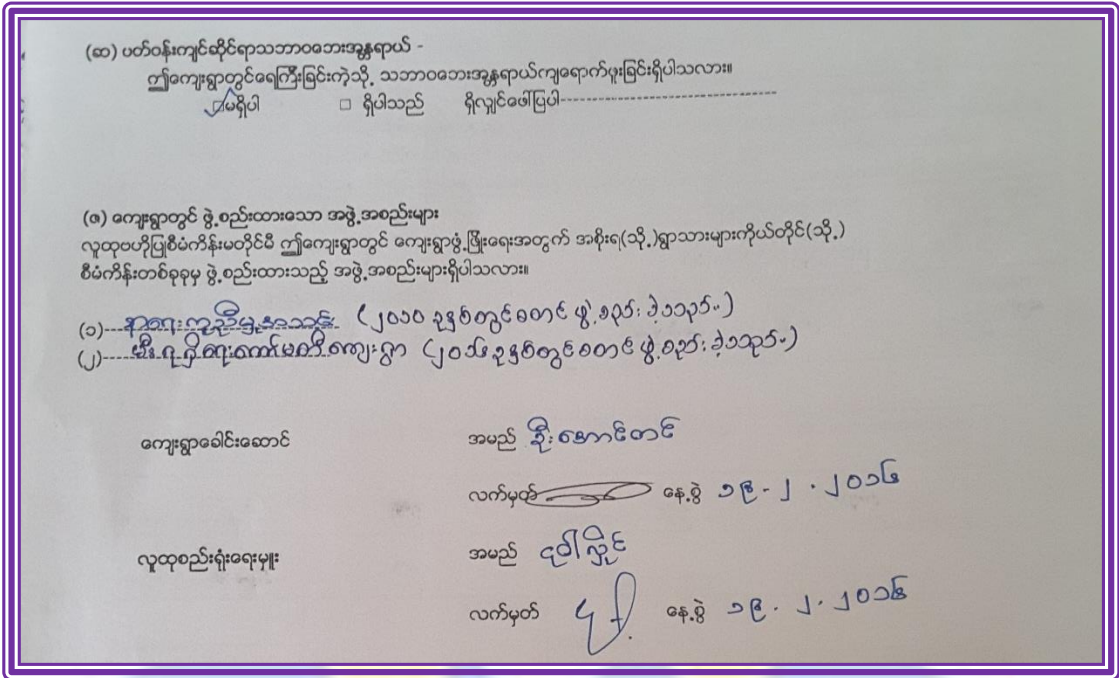 (ဆ) ပတ်ဝန်းကျင်ဆိုင်ရာသဘာဝဘေးအန္တရာယ် -
ဤကျေးရွာတွင်ရေကြီးခြင်းကဲ့သို့ သဘာဝဘေးအန္တရာယ်ကျရောက်ဖူးခြင်းရှိပါသလား။
မရှိပါ □ ရှိပါသည် ရှိလျှင်ဖေါ်ပြပါ--------------------------------
(ဇ) ကျေးရွာတွင် ဖွဲ့စည်းထားသော အဖွဲ့အစည်းများ
လူထုဗဟိုပြုစီမံကိန်းမတိုင်မီ ဤကျေးရွာတွင် ကျေးရွာဖွံ့ဖြိုးရေးအတွက် အစိုးရ(သို့)ရွာသားများကိုယ်တိုင်(သို့)
စီမံကိန်းတစ်ခုခုမှ ဖွဲ့စည်းထားသည့် အဖွဲ့အစည်းများရှိပါသလား။
(၁) နာရေးကူညီမှုအသင်း (၂၀၁၀ ခုနှစ်တွင်စတင် ဖွဲ့စည်းခဲ့သည်။)
(၂) ကျေးရွာ (၂၀၁၆ ခုနှစ်တွင်စတင် ဖွဲ့စည်းခဲ့သည်။)
ကျေးရွာခေါင်းဆောင် အမည် ဦးအောင်တင်
လက်မှတ် နေ့စွဲ ၁၉.၂.၂၀၁၆
လူထုစည်းရုံးရေးမှူး အမည် ငုဝါလှိုင်
လက်မှတ် နေ့စွဲ ၁၉.၂.၂၀၁၆